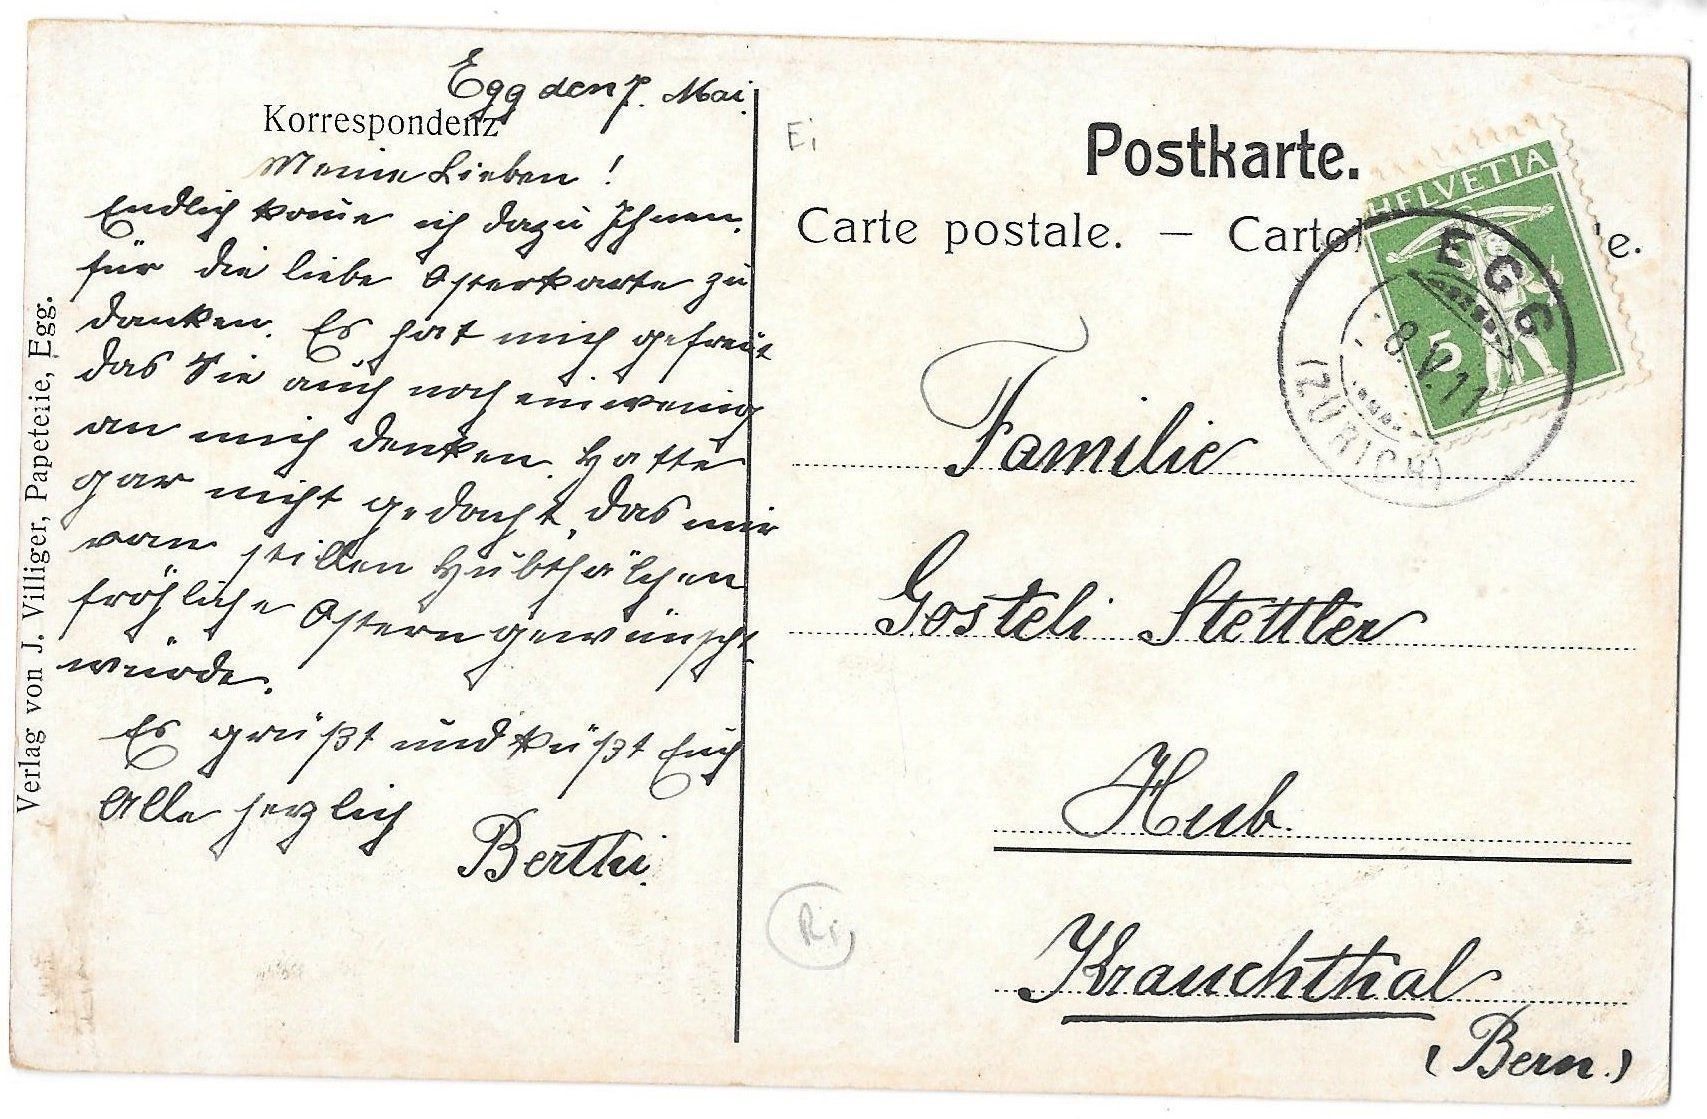 Egg den 7. Mai.
Korrespondenz
Meine Lieben !
Endlich kome ich dazu Ihnen.
für die liebe Osterkarte zu
danken. Es hat mich gefreut
das Sie auch noch ein wenig
an mich denken. Hatte
gar nicht gedacht, das mir
vom stillen Hubthälchen
fröhliche Ostern gewünscht
würde.
Es grüßt und küßt Euch
Alle herzlich
Berthi.
Verlag von J. Villiger, Papeterie, Egg.
Ei
Postkarte.
Carte postale. — Cartol
e.
HELVETIA
5
EGG
8.V.11
(ZÜRICH)
Familie
Gosteli Stettler
Hub.
Krauchthal
(Bern.)
Ri